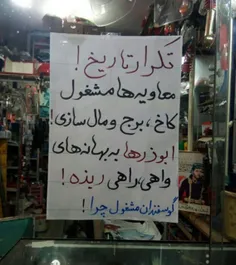 تکرار تاریخ!
معاویه ها مشغول
کاخ، برج و مال سازی!
ابوذرها به بهانه های
واهی، راهی ربذه!
گوسفندان مشغول چرا!